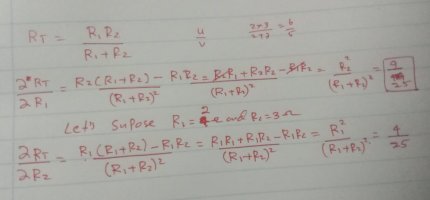 R_T = R₁R₂ / (R₁+R₂)    u/v    2×3 / 2+3 = 6/5
∂R_T/∂R₁ = R₂(R₁+R₂) − R₁R₂ / (R₁+R₂)² = R₂R₁ + R₂R₂ − R₁R₂ / (R₁+R₂)² = R₂² / (R₁+R₂)² = 9/25
Let's Supose R₁ = 2 Ω and R₂ = 3 Ω
∂R_T/∂R₂ = R₁(R₁+R₂) − R₁R₂ / (R₁+R₂)² = R₁R₁ + R₁R₂ − R₁R₂ / (R₁+R₂)² = R₁² / (R₁+R₂)² = 4/25